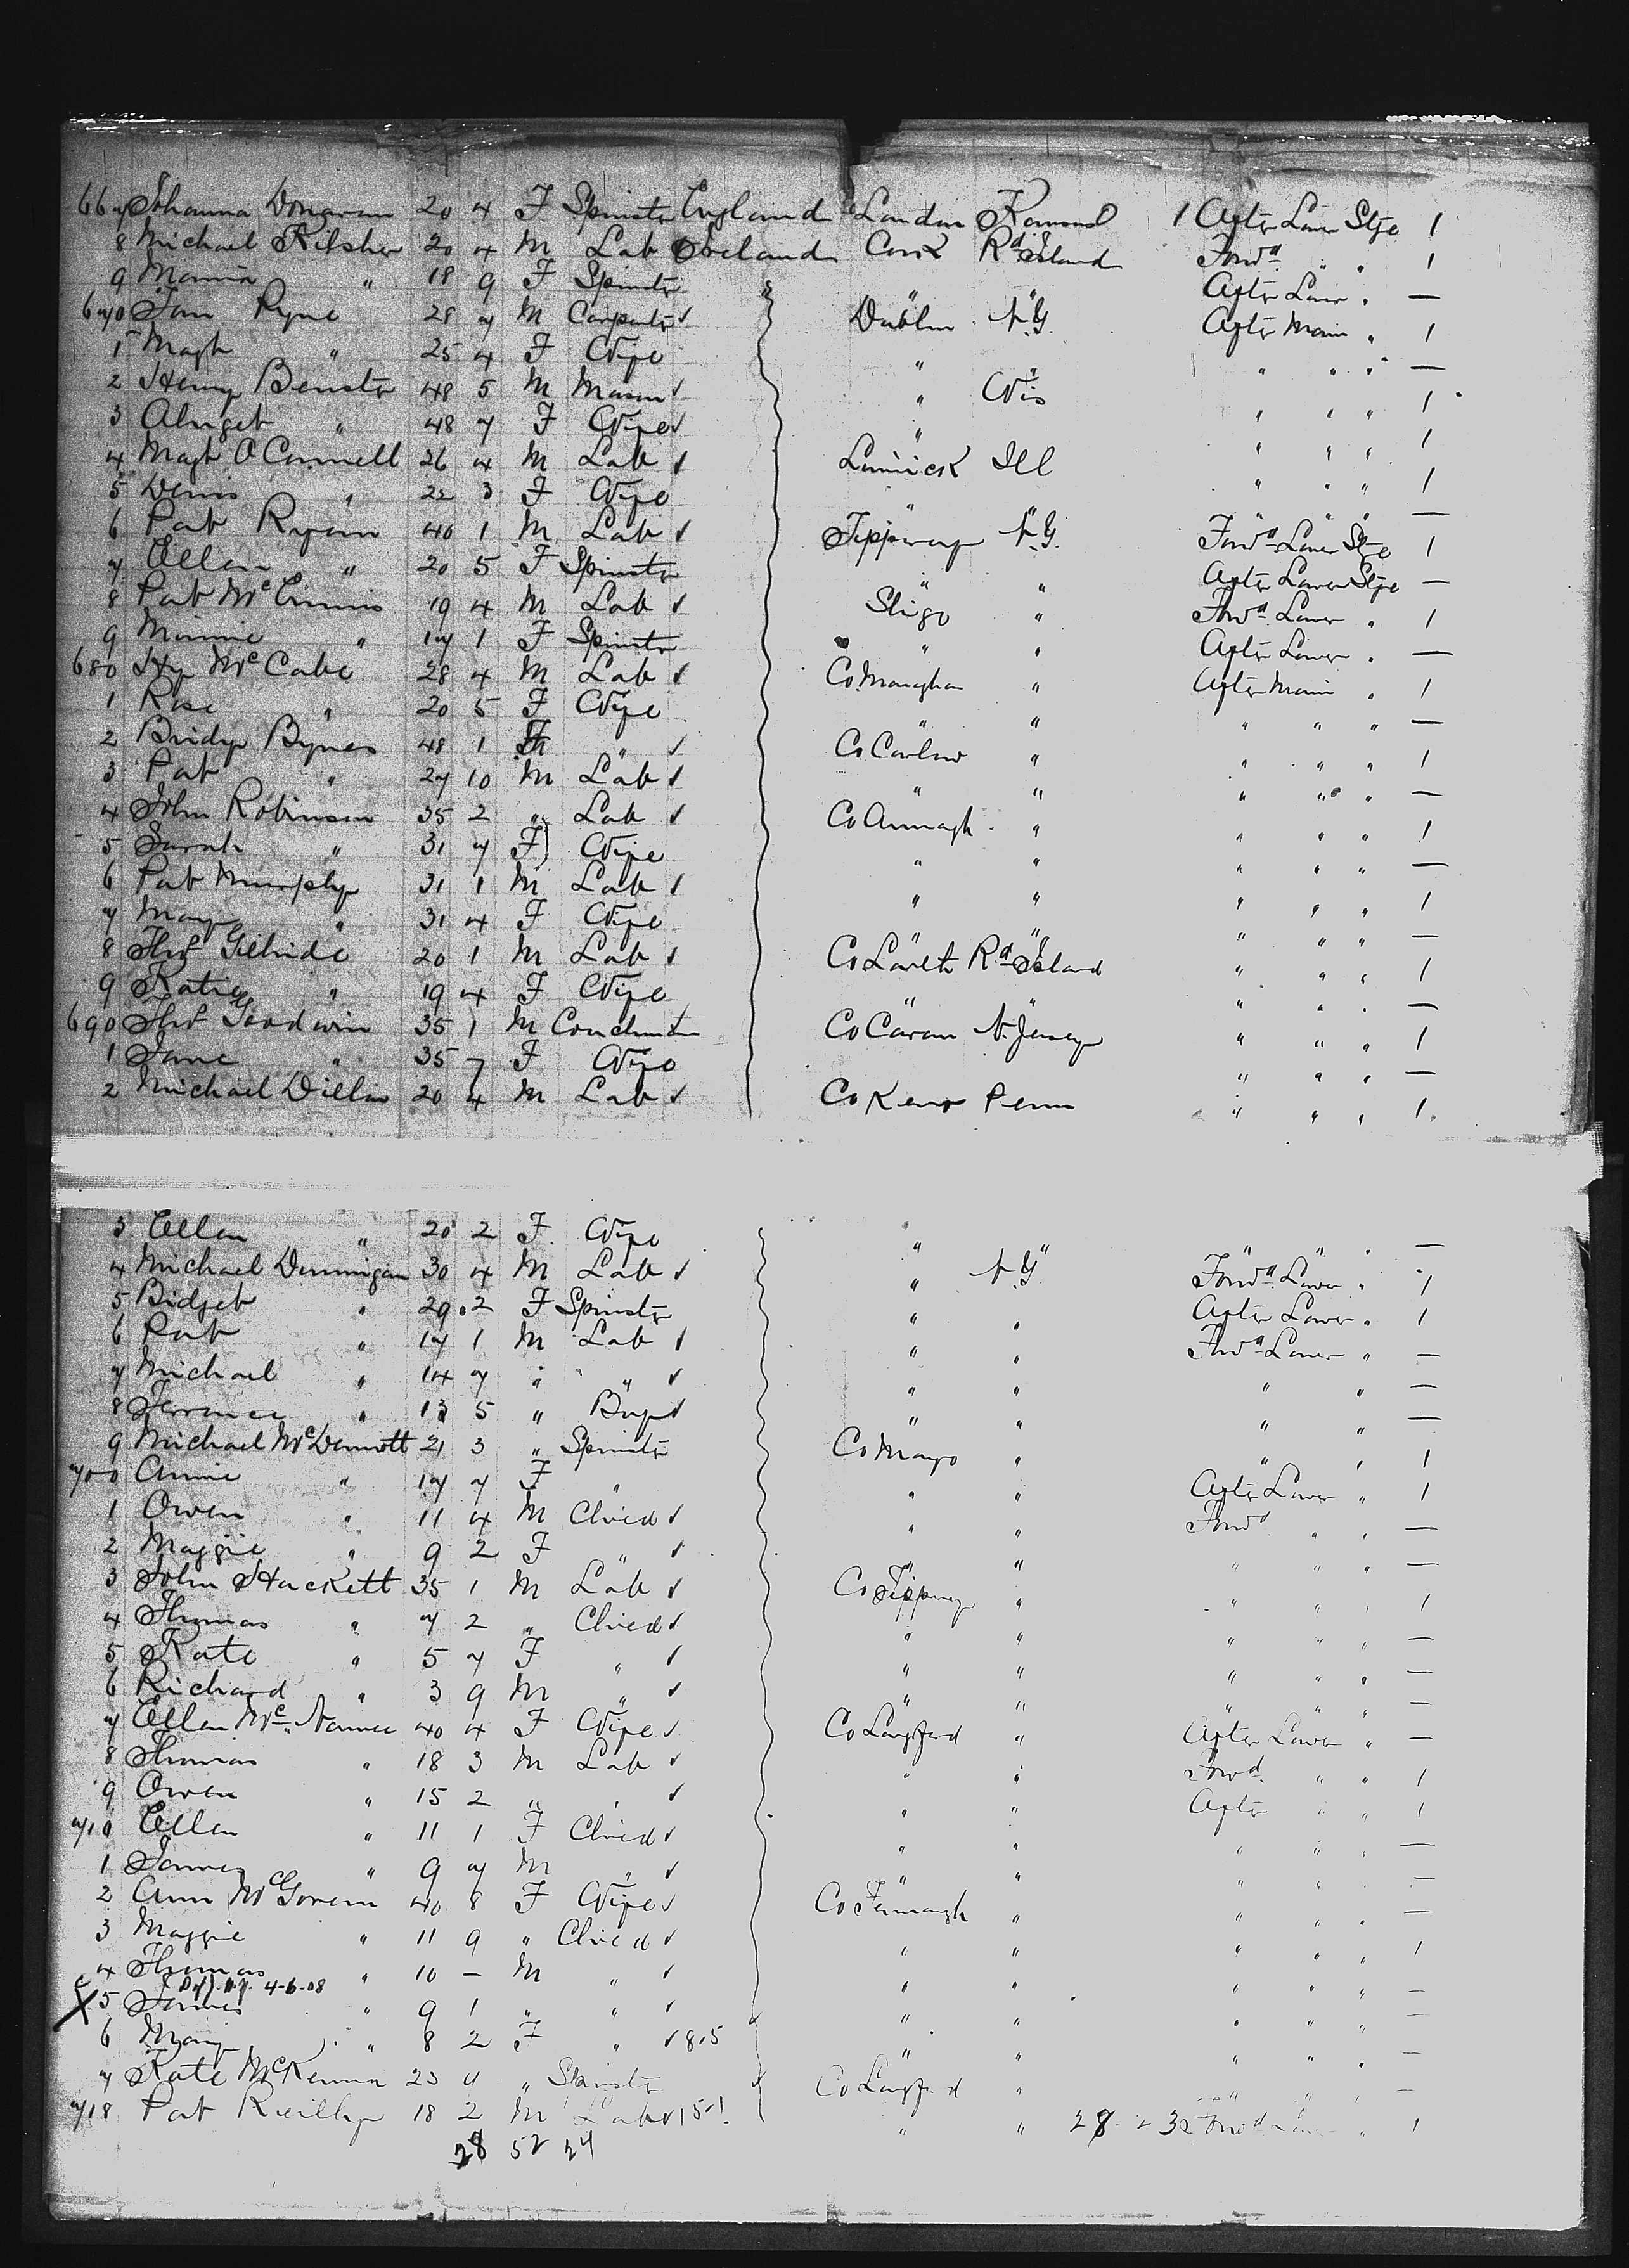 667 Johanna Donovan 20 4 F Spinster England London 1 After Lower Stge 1
8 Michael Kilsher 20 4 M Lab Ireland Cork Rd Island Forwd " " 1
9 Mamie " 18 9 F Spinster " " " After Lower " —
670 Jam Ryne 28 7 M Carpenter Dublin N.Y. After Main " 1
1 Magt " 25 4 F Wife " " " " " —
2 Henry Benster 48 5 M Mason " Wis " " " 1
3 " 48 7 F Wife " " " " 1
4 Magt O'Connell 26 4 M Lab Limrick Ill " " " 1
5 Denis " 22 3 F Wife " " " " " —
6 Pat Ryan 40 1 M Lab Tipperary N.Y. Forwd Lower Stge 1
7 Ellen " 20 5 F Spinster " " After Lower Stge —
8 Pat McGinnis 19 4 M Lab Sligo " Forwd Lower " 1
9 Minnie " 17 1 F Spinster " " After Lower " —
680 Hy McCabe 28 4 M Lab Co Monaghan " After Main " 1
1 Rose " 20 5 F Wife " " " " " —
2 Bridge Bynes 48 1 F " Co Carlow " " " " 1
3 Pat " 27 10 M Lab " " " " " —
4 John Robinson 35 2 " Lab Co Armagh " " " " 1
5 Sarah " 31 7 F Wife " " " " " —
6 Pat Murphy 31 1 M Lab " " " " " 1
7 Mary " 31 4 F Wife " " " " " —
8 Thos Gilbride 20 1 M Lab Co Louth Rd Island " " " 1
9 Katie " 19 4 F Wife " " " " —
690 Thos Goodwin 35 1 M Coachman Co Cavan N. Jersey " " " 1
1 Jane " 35 7 F Wife " " " —
2 Michael Dillon 20 4 M Lab Co Kerry Penn " " " 1
3 Ellen " 20 2 F Wife " " " " " —
4 Michael Dunnigan 30 4 M Lab " N.Y. Forwd Lower " 1
5 Bidget " 29 2 F Spinster " " After Lower " 1
6 Pat " 17 1 M Lab " " Forwd Lower " —
7 Michael " 14 7 " " " " " " —
8 Terrence " 13 5 " Boy " " " " —
9 Michael McDermott 21 3 " Spinster Co Mayo " " " 1
700 Annie " 17 7 F " " " After Lower " 1
1 Owen " 11 4 M Child " " Forwd " " —
2 Maggie " 9 2 F " " " " " " —
3 John Hackett 35 1 M Lab Co Tipperary " " " " 1
4 Thomas " 7 2 " Child " " " " " —
5 Kate " 5 7 F " " " " " " —
6 Richard " 3 9 M " " " " " " —
7 Ellen McNamee 40 4 F Wife Co Longford " After Lower " —
8 Thomas " 18 3 M Lab " " Forwd " " 1
9 Owen " 15 2 " " " " After " " 1
710 Ellen " 11 1 F Child " " " " " —
1 James " 9 7 M " " " " " " —
2 Ann McGovern 40 8 F Wife Co Fermanagh " " " " —
3 Maggie " 11 9 " Child " " " " " 1
4 Thomas " 10 — M " " " " " " —
4-6-08
X 5 James " 9 1 " " " " " " " —
6 Mary " 8 2 F " 815 " " " " " —
7 Kate McKenna 23 4 " Spinster Co Longford " " " " —
718 Pat Reilly 18 2 M Lab 151 " " 28 32 Forwd Lower " 1
28 52 24